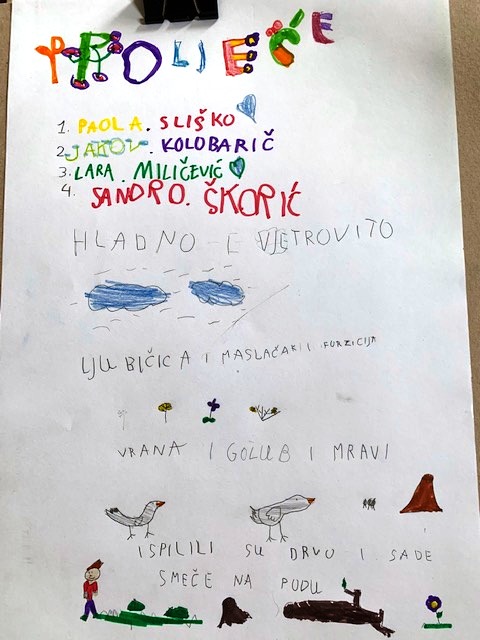 PROLJEĆE
1. PAOLA. SLIŠKO
2. JAKOV. KOLOBARIČ
3. LARA. MILIČEVIĆ
4. SANDRO. ŠKORIĆ
HLADNO I VJETROVITO
LJUBIČICA I MASLAČAK I FURZICIJA
VRANA I GOLUB I MRAVI
ISPILILI SU DRVO I SADE
SMEČE NA PODU